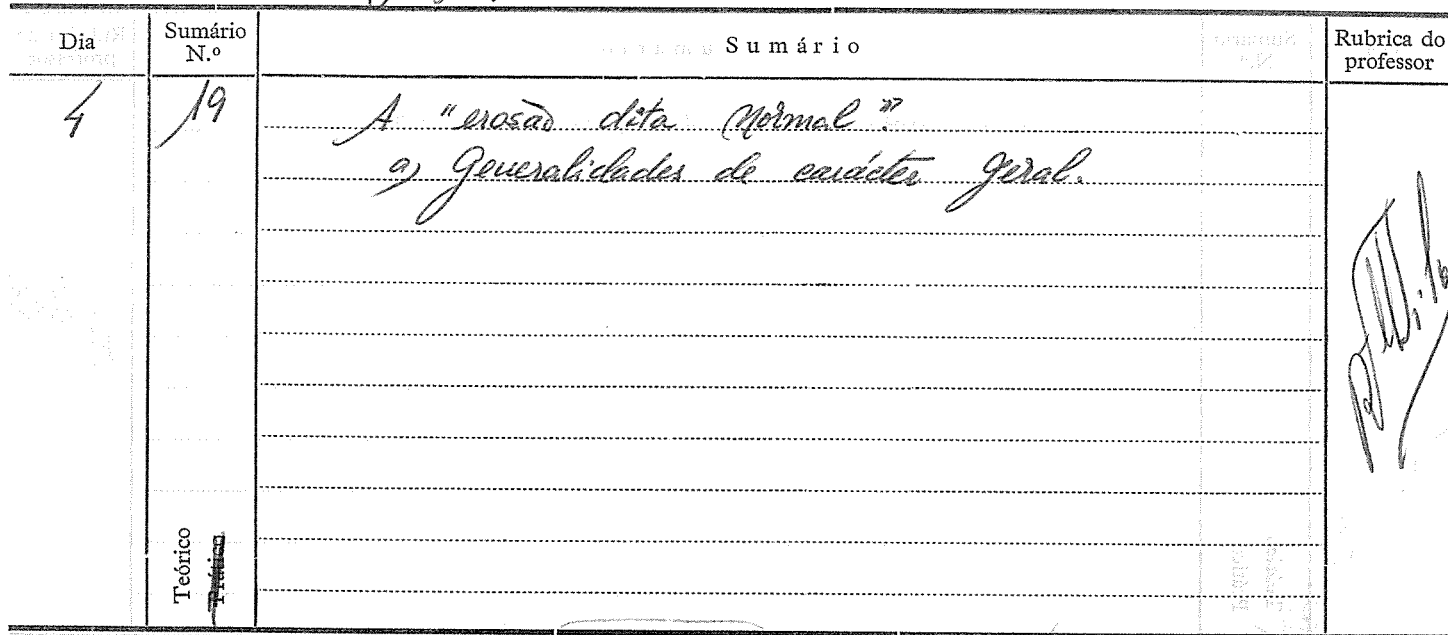 Dia Sumário N.º Sumário Rubrica do professor
4 19 A "erosão dita normal".
a) Generalidades de carácter geral.
Teórico
Prático